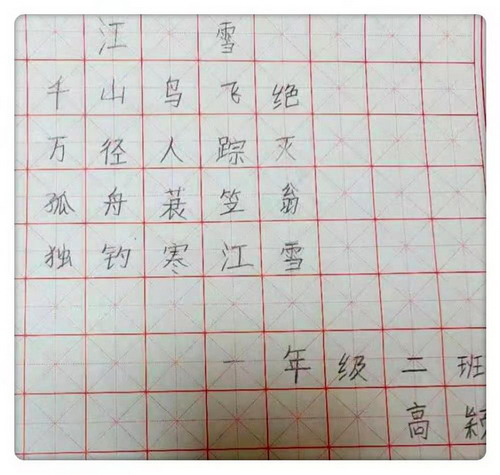 江雪
千山鸟飞绝
万径人踪灭
孤舟蓑笠翁
独钓寒江雪
一年级二班
高颖